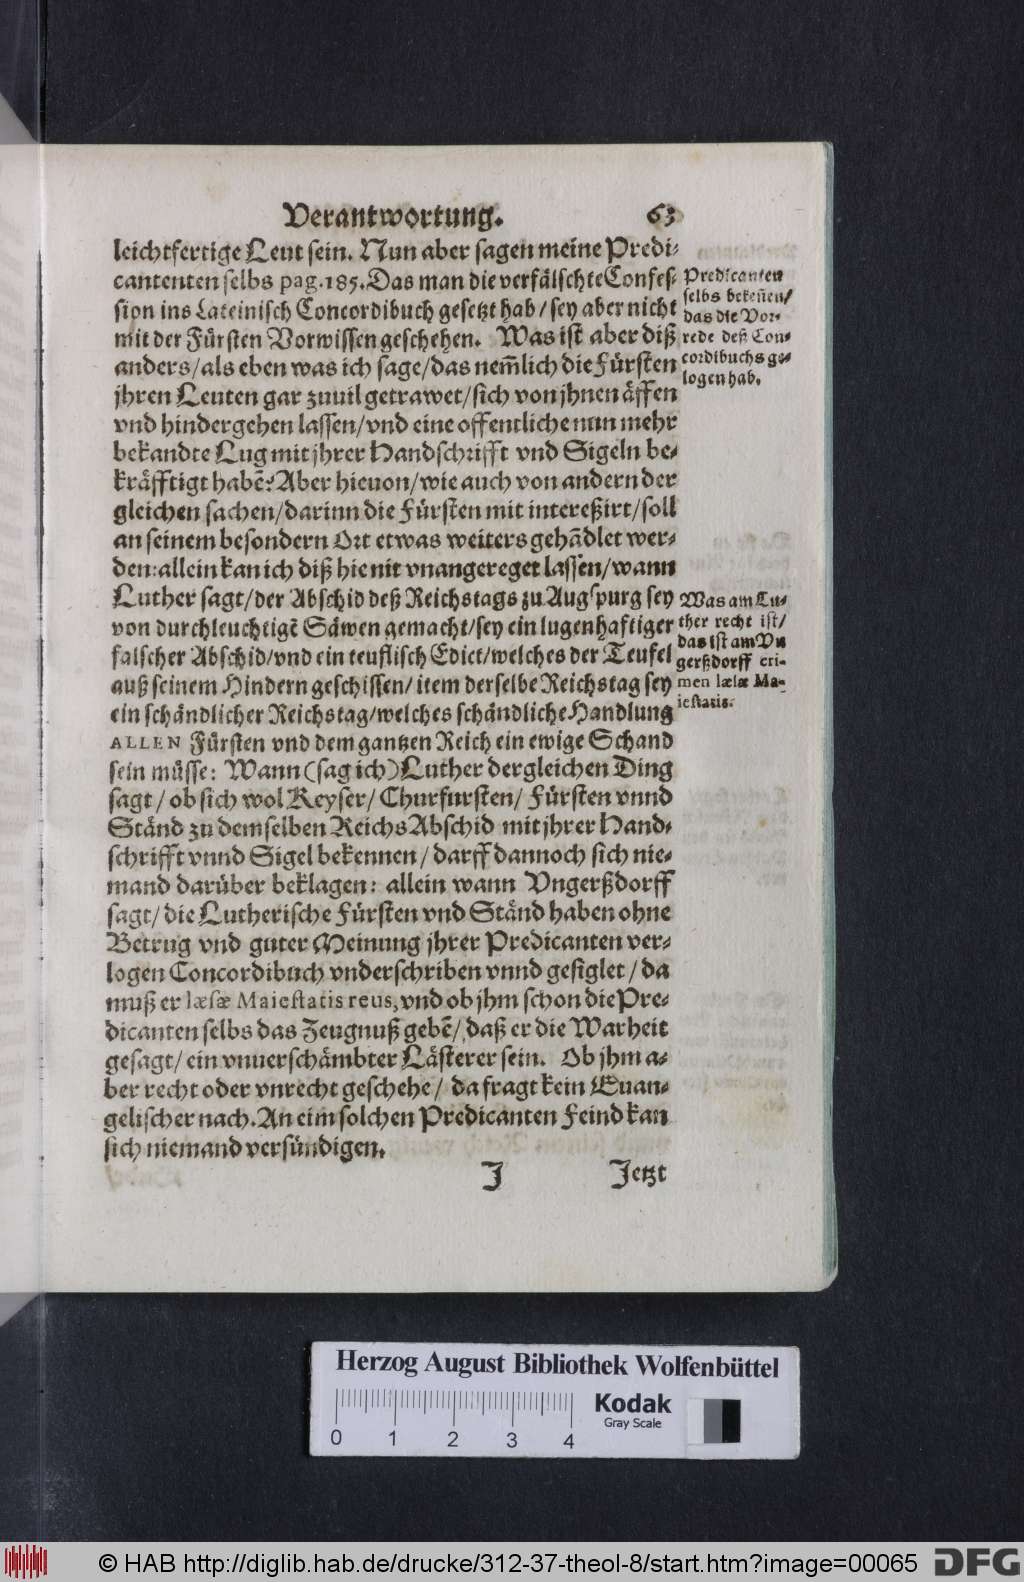 Verantwortung. 63
leichtfertige Leut sein. Nun aber sagen meine Predi-
cantenten selbs pag. 185. Das man die verfälschte Confes-
sion ins Lateinisch Concordibuch gesetzt hab / sey aber nicht
mit der Fürsten Vorwissen geschehen. Was ist aber diß
anders / als eben was ich sage / das nem̃lich die Fürsten
jhren Leuten gar zuuil getrawet / sich von jhnen äffen
vnd hindergehen lassen / vnd eine offentliche nun mehr
bekandte Lug mit jhrer Handschrifft vnd Sigeln be-
kräfftigt habẽ? Aber hieuon / wie auch von andern der
gleichen sachen / darinn die Fürsten mit intereßirt / soll
an seinem besondern Ort etwas weiters gehãdlet wer-
den: allein kan ich diß hie nit vnangereget lassen / wann
Luther sagt / der Abschid deß Reichstags zu Augspurg sey
von durchleuchtigẽ Säwen gemacht / sey ein lugenhaftiger
falscher Abschid / vnd ein teuflisch Edict / welches der Teufel
auß seinem Hindern geschissen / item derselbe Reichstag sey
ein schändlicher Reichstag / welches schändliche Handlung
ALLEN Fürsten vnd dem gantzen Reich ein ewige Schand
sein müsse: Wann (sag ich) Luther dergleichen Ding
sagt / ob sich wol Keyser / Churfursten / Fürsten vnnd
Ständ zu demselben Reichs Abschid mit jhrer Hand-
schrifft vnnd Sigel bekennen / darff dannoch sich nie-
mand darüber beklagen: allein wann Vngerßdorff
sagt / die Lutherische Fürsten vnd Ständ haben ohne
Betrug vnd guter Meinung jhrer Predicanten ver-
logen Concordibuch vnderschriben vnnd gesiglet / da
muß er læsæ Maiestatis reus, vnd ob jhm schon die Pre-
dicanten selbs das Zeugnuß gebẽ / daß er die Warheit
gesagt / ein vnuerschämbter Lästerer sein. Ob jhm a-
ber recht oder vnrecht geschehe / da fragt kein Euan-
gelischer nach. An eim solchen Predicanten Feind kan
sich niemand versündigen.
J Jetzt
Predicanten
selbs bekeñen /
das die Vor-
rede deß Con-
cordibuchs ge-
logen hab.
Was am Lu-
ther recht ist /
das ist am Vn
gerßdorff cri-
men læsæ Ma-
iestatis.
Herzog August Bibliothek Wolfenbüttel
Kodak
Gray Scale
0 1 2 3 4
© HAB http://diglib.hab.de/drucke/312-37-theol-8/start.htm?image=00065
DFG